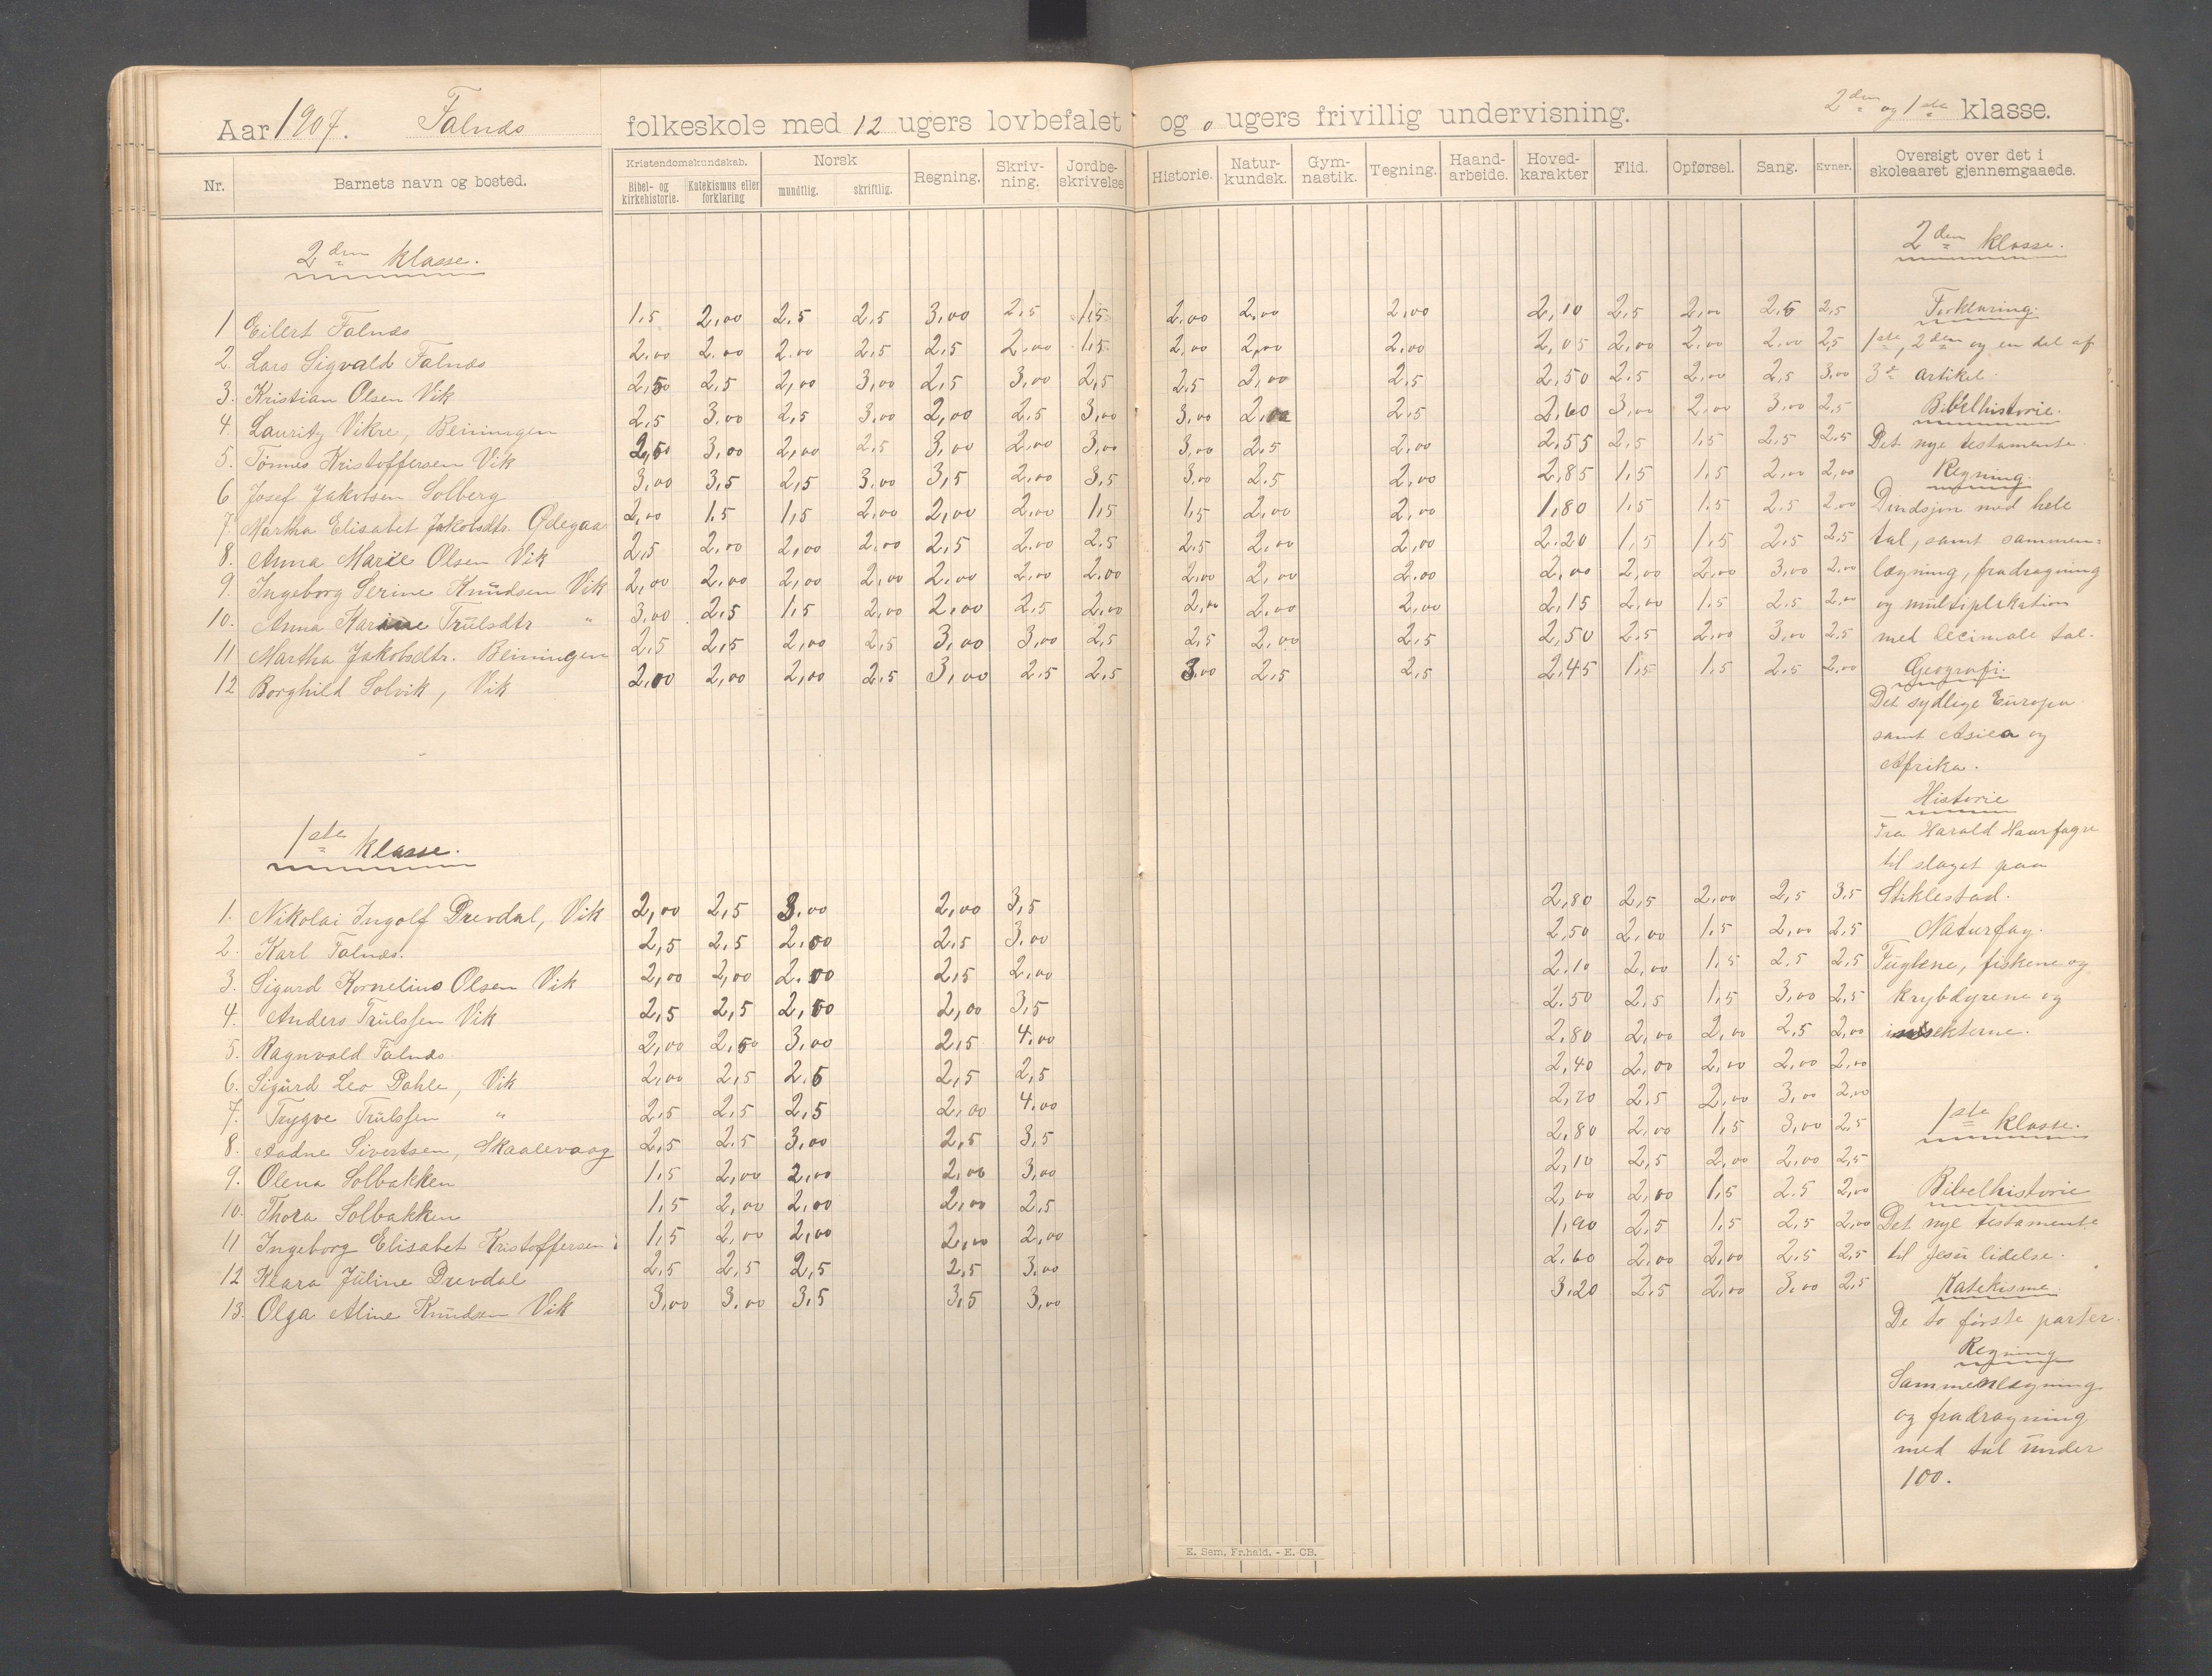 Aar 1907. Falnæs folkeskole med 12 ugers lovbefalet og 0 ugers frivillig undervisning. 2den og 1ste klasse.
Nr. Barnets navn og bosted. Kristendomskundskab. Bibel- og kirkehistorie. Katekismus eller forklaring Norsk mundtlig. skriftlig. Regning. Skriv-ning. Jordbe-skrivelse Historie. Natur-kundsk. Gym-nastik. Tegning. Haand-arbeide. Hoved-karakter Flid. Opførsel. Sang. Evner. Oversigt over det i skoleaaret gjennemgaaede.
2den klasse.
1 Eilert Falnæs 1,5 2,00 2,5 2,5 3,00 2,5 1,5 2,00 2,00 2,00 2,10 2,5 2,00 2,5 2,5
2. Lars Sigvald Falnæs 2,00 2,00 2,00 2,5 2,5 2,00 1,5 2,00 2,00 2,00 2,05 2,00 2,00 2,00 2,5
3. Kristian Olsen Vik 2,50 2,5 2,00 3,00 2,5 3,00 2,5 2,5 2,00 2,5 2,50 2,5 2,00 2,5 3,00
4. Lauritz Vikre, Beiningen 2,5 3,00 2,5 3,00 2,00 2,5 3,00 3,00 2,00 2,5 2,60 3,00 2,00 3,00 2,5
5. Tønnes Kristoffersen Vik 2,50 3,00 2,00 2,5 3,00 2,00 3,00 3,00 2,5 2,00 2,55 2,5 1,5 2,5 2,5
6. Josef Jakobsen Solberg 3,00 3,5 2,5 3,00 3,5 2,00 3,5 3,00 2,5 2,00 2,85 1,5 1,5 2,00 2,00
7. Martha Elisabet Jakobsdtr. Ødegaa 2,00 1,5 1,5 2,00 2,00 2,00 1,5 1,5 2,00 2,00 1,80 1,5 1,5 2,5 2,00
8. Anna Marie Olsen Vik 2,5 2,00 2,00 2,00 2,5 2,00 2,5 2,5 2,00 2,00 2,20 1,5 1,5 2,5 2,5
9. Ingeborg Serine Knudsen Vik 2,00 2,00 2,00 2,00 2,00 2,00 2,00 2,00 2,00 2,00 2,00 2,00 2,00 3,00 2,00
10. Anna Karine Trulsdtr " 3,00 2,5 1,5 2,00 2,00 2,5 2,00 2,00 2,00 2,00 2,15 2,00 1,5 2,5 2,00
11 Martha Jakobsdtr. Beiningen 2,5 2,5 2,00 2,5 3,00 3,00 2,5 2,5 2,00 2,5 2,50 2,5 2,00 3,00 2,5
12 Borghild Solvik, Vik 2,00 2,00 2,00 2,5 3,00 2,5 2,5 3,00 2,5 2,5 2,45 1,5 1,5 2,5 2,00
1ste klasse.
1. Nikolai Ingolf Drevdal, Vik 2,00 2,5 3,00 2,00 3,5 2,80 2,5 2,00 2,5 3,5
2. Karl Falnæs. 2,5 2,5 2,00 2,5 3,00 2,50 2,00 1,5 2,00 2,5
3. Sigurd Kornelius Olsen Vik 2,00 2,00 2,00 2,5 2,00 2,10 2,00 1,5 2,5 2,5
4. Anders Trulssen Vik 2,5 2,5 2,50 2,00 3,5 2,50 2,5 1,5 3,00 2,5
5. Ragnvald Falnæs 2,00 2,50 3,00 2,5 4,00 2,80 2,00 2,00 2,5 2,00
6. Sigurd Leo Dahle, Vik 2,00 2,5 2,5 2,5 2,5 2,40 2,00 2,00 2,00 2,00
7. Trygve Trulssen " 2,5 2,5 2,5 2,00 4,00 2,70 2,5 2,00 3,00 2,00
8. Aadne Sivertsen, Skaalevaag 2,5 2,5 3,00 2,5 3,5 2,80 2,00 1,5 3,00 2,5
9. Olena Solbakken 1,5 2,00 2,00 2,00 3,00 2,10 2,5 2,00 2,00 2,5
10. Thora Solbakken 1,5 2,00 2,00 2,00 2,5 2,00 2,00 1,5 2,5 2,00
11 Ingeborg Elisabet Kristoffersen 1,5 2,00 2,00 2,00 2,00 1,90 2,5 1,5 2,5 2,00
12 Klara Juline Drevdal 2,5 2,5 2,5 2,5 3,00 2,60 2,00 2,00 2,5 2,5
13. Olga Aline Knudsen Vik 3,00 3,00 3,5 3,5 3,00 3,20 2,5 2,00 3,00 2,5
2den klasse.
Forklaring.
1ste, 2den og en del af
3die artikel.
Bibelhistorie.
Det nye testamente.
Regning.
Divisjon med hele
tal, samt sammen=
lægning, fradragning
og multiplikation
med decimale tal.
Geografi.
Det sydlige Europa
samt Asien og
Afrika.
Historie
Fra Harald Haarfagre
til slaget paa
Stiklestad.
Naturfag.
Fuglene, fiskene og
krybdyrene og
insekterne.
1ste klasse.
Bibelhistorie
Det nye testamente
til Jesu lidelse.
Katekisme.
De to første parter.
Regning
Sammenlægning
og fradragning
med tal under
100.
E. Sem, Fr.hald. - E. CB.